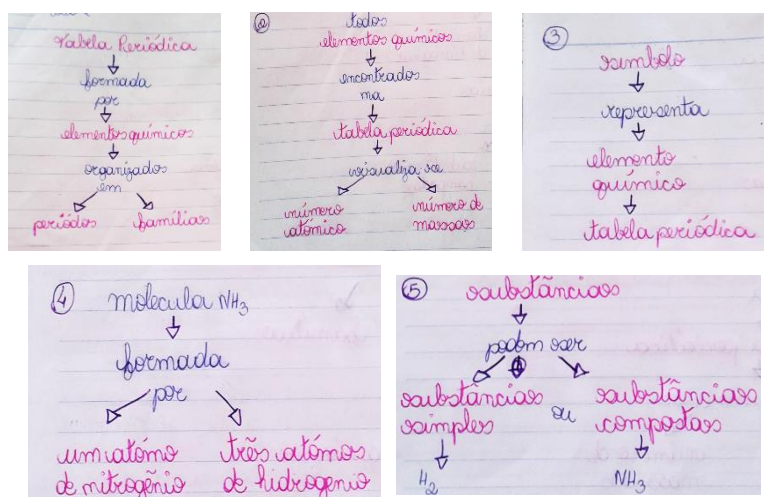 Tabela Periódica
formada
por
elementos químicos
organizados
em
periódos famílias
2
todos
elementos químicos
encontrados
na
tabela periódica
visualiza se
número atómico
número de massas
3
simbolo
representa
elemento
químico
tabela periódica
4
molecula NH3
formada
por
um atómo
de nitrogênio
três atómos
de hidrogênio
5
substâncias
podem ser
substâncias
simples
ou
substâncias
compostas
H2
NH3